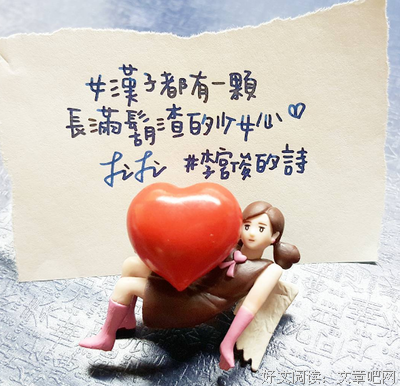 女漢子都有一顆
長滿鬍渣的少女心♡
#李宮俊的詩
好文阅读：文章吧网